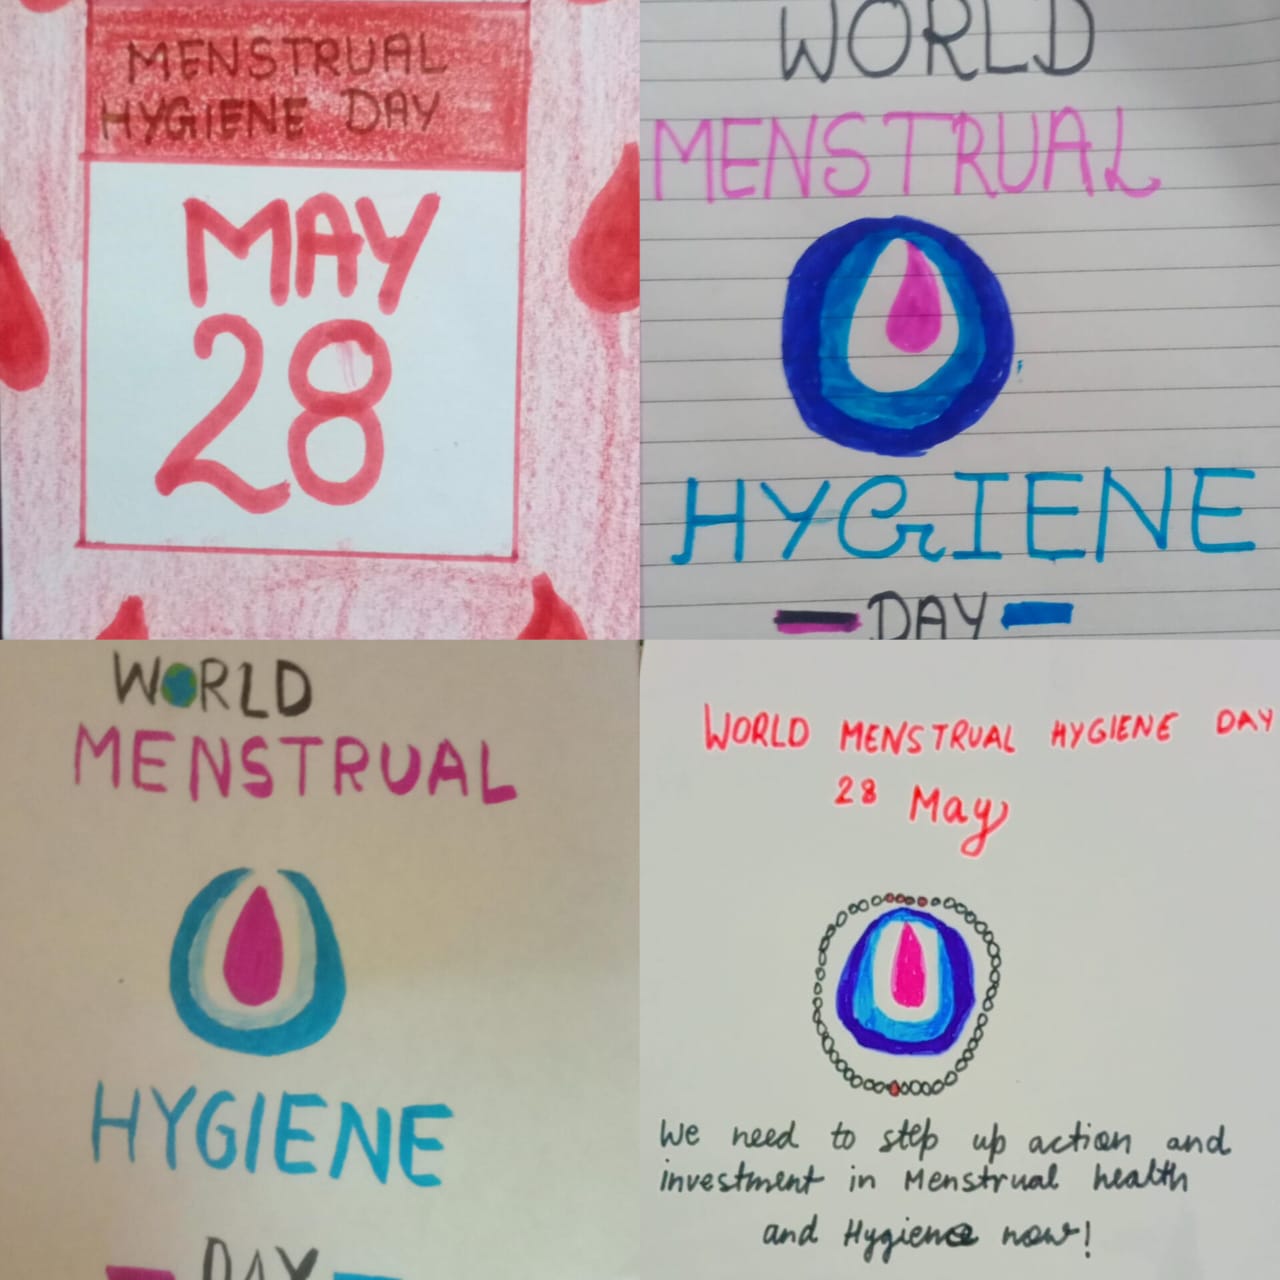 MENSTRUAL
HYGIENE DAY
MAY
28
WORLD
MENSTRUAL
HYGIENE
DAY
WORLD
MENSTRUAL
HYGIENE
DAY
WORLD MENSTRUAL HYGIENE DAY
28 May
We need to step up action and
investment in Menstrual health
and Hygiene now!